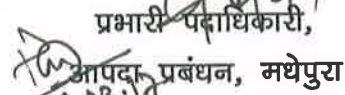 प्रभारी पदाधिकारी,
आपदा प्रबंधन, मधेपुरा